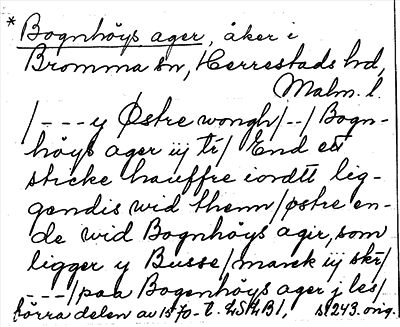 * Bognhöys ager, åker i
Bromma sn, Herrestads hd,
Malm. l.
/---y Østre wongh/--/Bogn-
höys ager iij tr/ End ett
sticke hauffre iordtt lig-
gendis wid them/østre en-
de wid Bognhöys agir, som
ligger y Busse/marck iij skr/
---/paa Bogenhöys ager j les/
förra delen av 1570-t. LSHB1, s 243. orig.